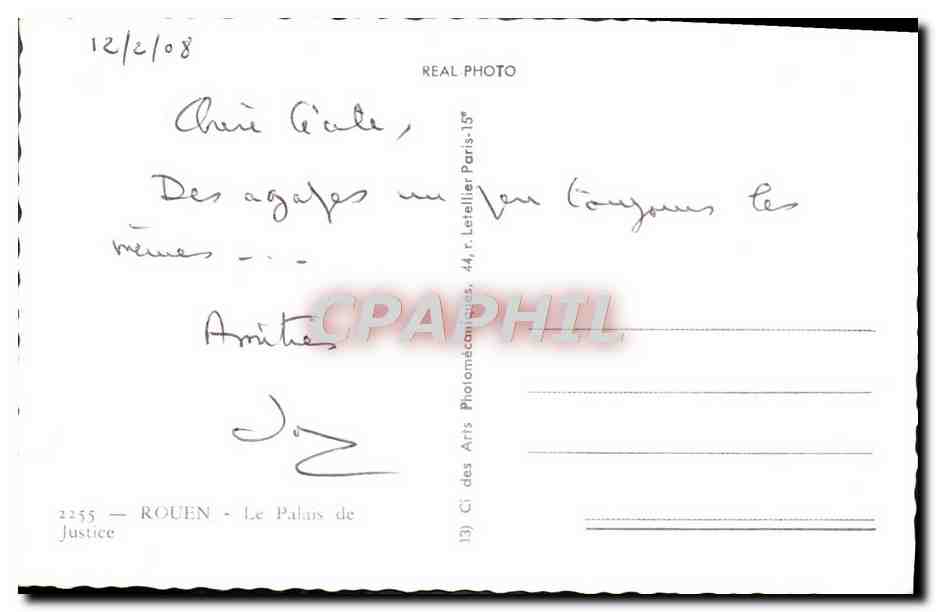 12/2/08
REAL PHOTO
Chère
Des agapes un peu toujours les
mêmes - . .
Amitiés
CPAPHIL
13) Ci des Arts Photomécaniques, 44, r. Letellier Paris-15e
2255 — ROUEN - Le Palais de
Justice